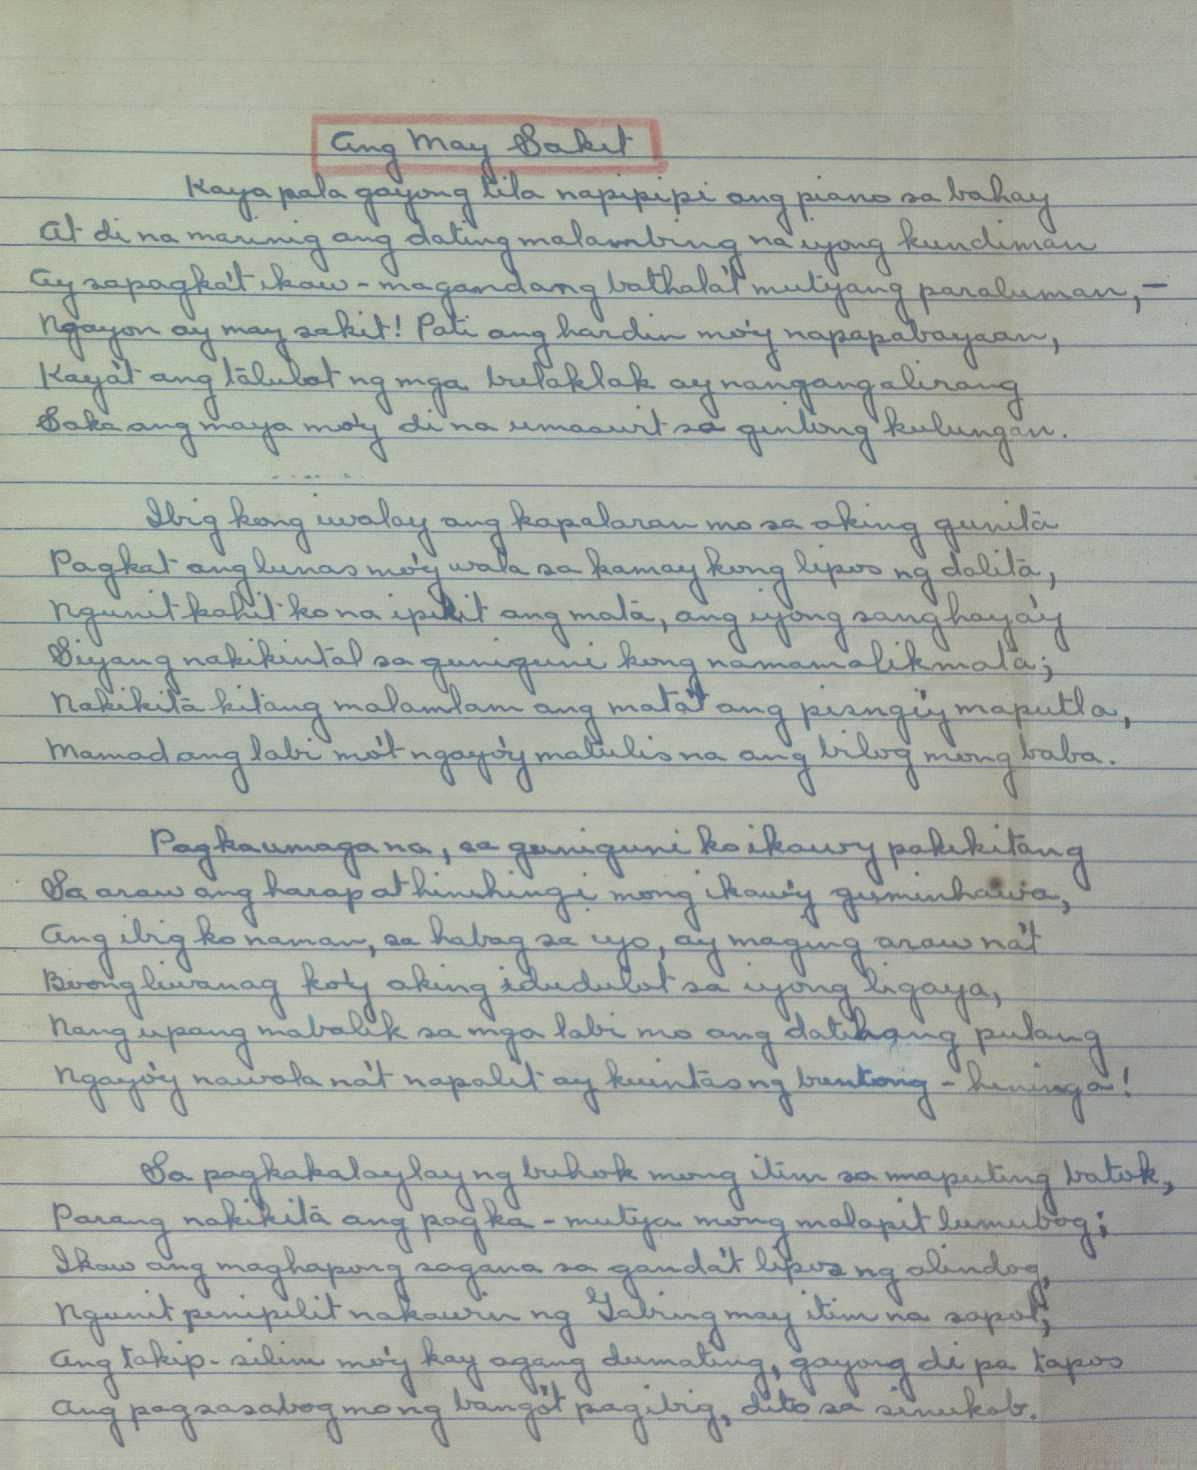 Ang May Sakit
Kaya pala gayong tila napipipi ang piano sa bahay
At di na marinig ang dating malambing na iyong kundiman
Ay sapagka't ikaw - magandang bathala't mutyang paraluman, -
Ngayon ay may sakit! Pati ang hardin mo'y napapabayaan,
Kaya't ang tālulot ng mga bulaklak ay nangangalirang
Saka ang maya mo'y di na umaawit sa gintong kulungan.
. . . . . .
Ibig kong iwalay ang kapalaran mo sa aking gunitā
Pagkat ang lunas mo'y wala sa kamay kong lipos ng dalitā,
Ngunit kahit ko na ipikit ang matā, ang iyong sanghaya'y
Siyang nakikintal sa guniguni kong namamalikmata;
Nakikitā kitang malamlam ang mata't ang pisngi'y maputla,
Mamad ang labi mo't ngayo'y matulis na ang bilog mong baba.
Pagkaumaga na, sa guniguni ko ikaw'y pakikitang
Sa araw ang harap at hinihingi mong ikaw'y guminhawa,
Ang ibig ko naman, sa habag sa iyo, ay maging araw na't
Boong liwanag ko'y aking idudulot sa iyong ligaya,
Nang upang mabalik sa mga labi mo ang datihang pulang
Ngayo'y nawala na't napalit ay kuintas ng buntong - hininga!
Sa pagkakalaylay ng buhok mong itim sa maputing batok,
Parang nakikitā ang pagka - mutya mong malapit lumubog;
Ikaw ang maghapong sagana sa ganda't lipos ng alindog,
Ngunit pinipilit nakawin ng Gabing may itim na sapot;
Ang takip - silim mo'y kay agang dumating, gayong di pa tapos
Ang pagsasabog mo ng bango't pagibig, dito sa sinukob.